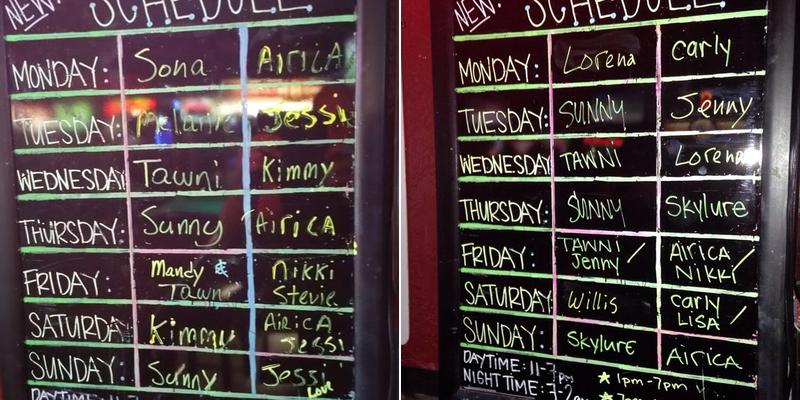 NEW! SCHEDULE
MONDAY: Sona AIRICA
TUESDAY: Melanie Jessi
WEDNESDAY Tawni Kimmy
THURSDAY: Sunny AIRICA
FRIDAY: Mandy & Nikki
Tawni Stevie
SATURDAY Kimmy AIRICA
Jessi
SUNDAY: Sunny Jessi
Love
NEW! SCHEDULE
MONDAY: Lorena carly
TUESDAY: SUNNY Jenny
WEDNESDAY TAWNI Lorena
THURSDAY: SUNNY Skylure
FRIDAY: TAWNI / AIRICA /
Jenny NIKKI
SATURDAY Willis carly /
LISA
SUNDAY: SkyluRE AIRICA
DAYTIME: 11-7pm
NIGHT TIME: 7-2am ★ 1pm-7pm